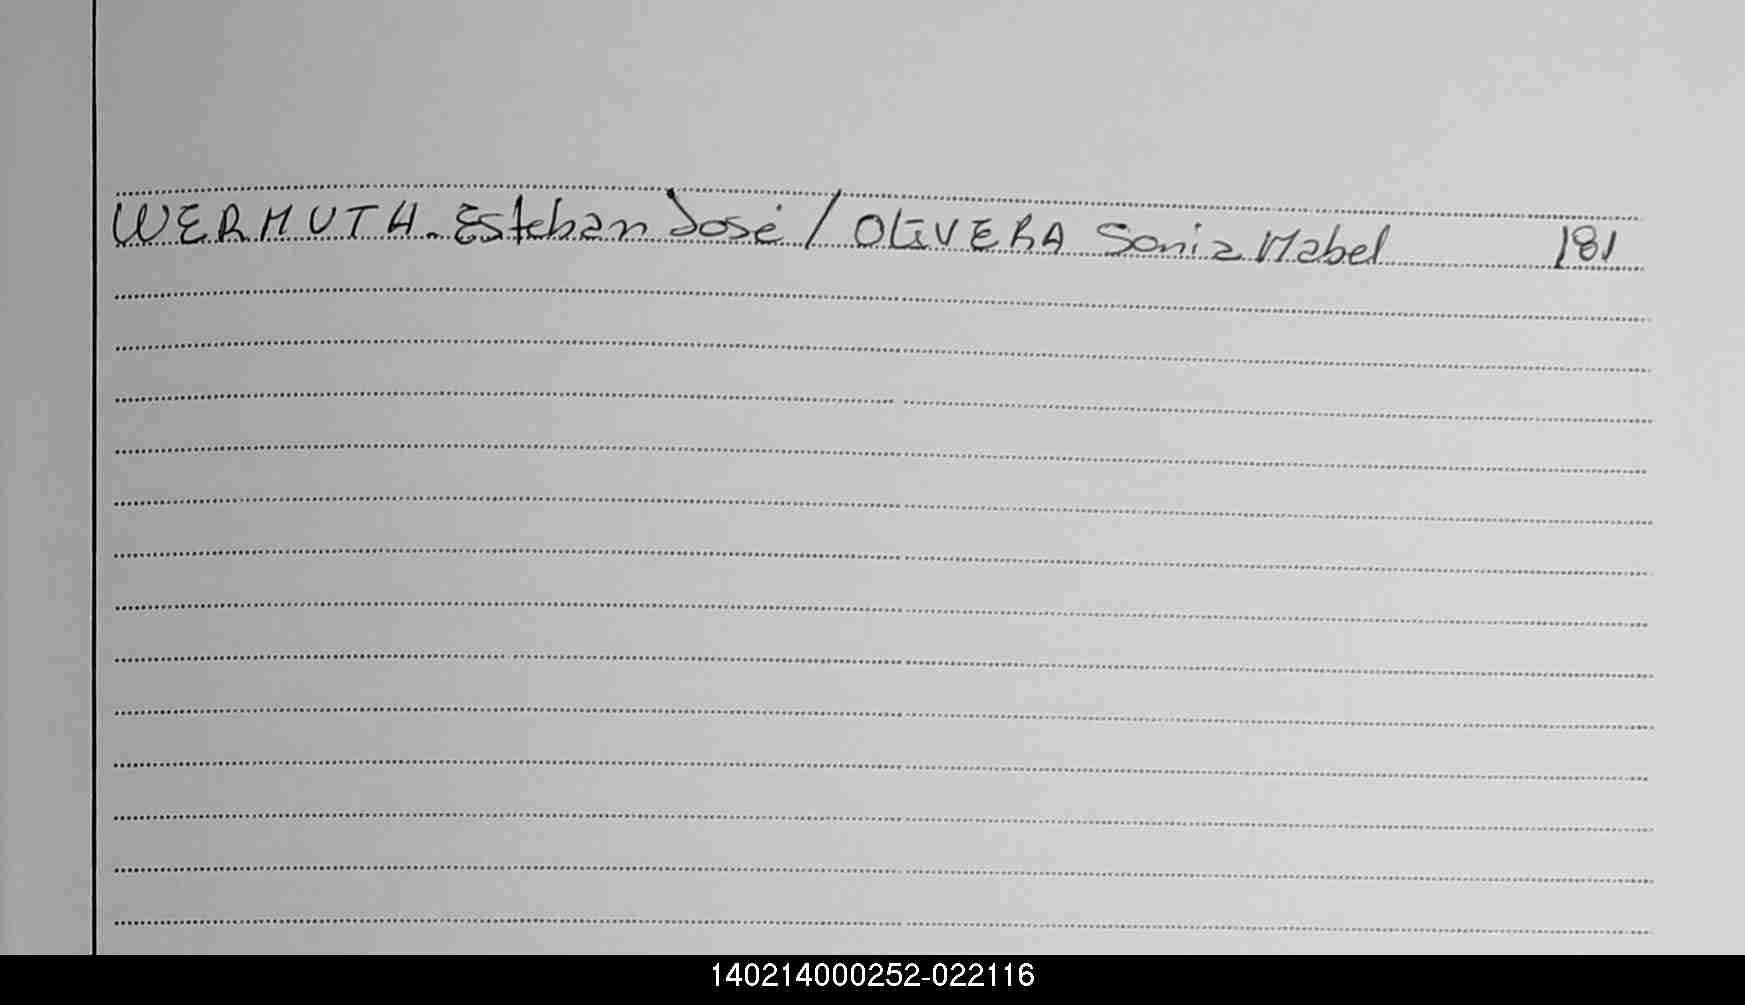 WERMUTH. Esteban José / OLIVERA Sonia Mabel 181
140214000252-022116